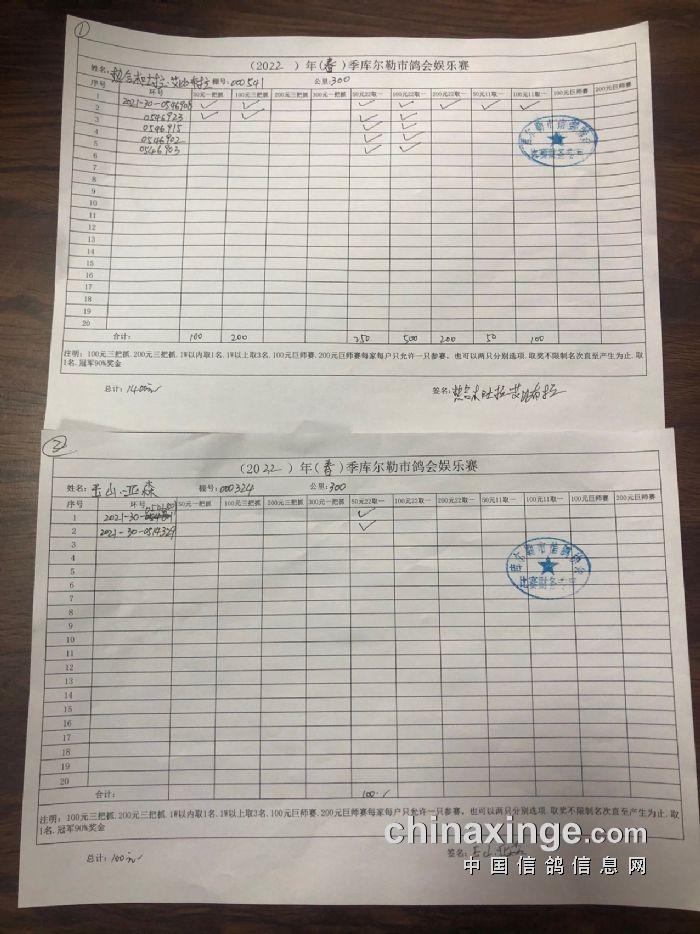 ①
(2022)年(春)季库尔勒市鸽会娱乐赛
姓名: 棚号:000541 公里:300
序号 环号 50元一把抓 100元三把抓 200元三把抓 300元一把抓 50元22取一 100元22取一 200元22取一 50元11取一 100元11取一 100元巨师赛 200元巨师赛
1 2021-30-0546908 ✓ ✓ ✓ ✓ ✓ ✓ ✓
2 0546923 ✓ ✓ ✓ ✓
3 0546915 ✓ ✓
4 0546902 ✓ ✓
5 0546903 ✓ ✓
6
7
8
9
10
11
12
13
14
15
16
17
18
19
20
合计: 100 200 250 500 200 50 100
注明: 100元三把抓.200元三把抓.1W以内取1名.1W以上取3名.100元巨师赛.200元巨师赛每家每户只允许一只参赛。也可以两只分别选项.取奖不限制名次直至产生为止.取
1名.冠军90%奖金
总计: 1400元 签名:
库尔勒市信鸽协会
比赛财务专用
(2022)年(春)季库尔勒市鸽会娱乐赛
姓名: 玉山·亚森 棚号:000324 公里:300
序号 环号 50元一把抓 100元三把抓 200元三把抓 300元一把抓 50元22取一 100元22取一 200元22取一 50元11取一 100元11取一 100元巨师赛 200元巨师赛
1 2021-30- ✓
2 2021-30-0514329 ✓
3
4
5
6
7
8
9
10
11
12
13
14
15
16
17
18
19
20
合计: 100
注明: 100元三把抓.200元三把抓.1W以内取1名.1W以上取3名.100元巨师赛.200元巨师赛每家每户只允许一只参赛。也可以两只分别选项.取奖不限制名次直至产生为止.取
1名.冠军90%奖金
总计: 100元 签名: 玉山·亚森
库尔勒市信鸽协会
比赛财务专用
chinaxinge.com
中国信鸽信息网